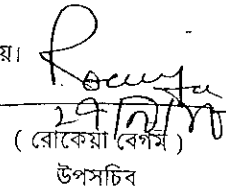 য়।
( রোকেয়া বেগম )
উপসচিব